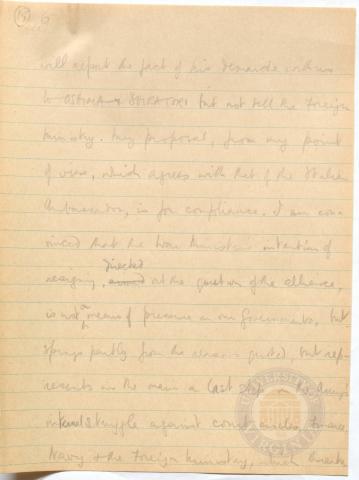 (5) 6
will report the fact of his demands
to OSHIMA + SHIRATORI but not tell the Foreign
Ministry. My proposal, from my point
of view, which agrees with that of the Italian
Ambassador, is for compliance. I am con
vinced that the War Minister's intention of
resigning, aimed directed at the question of the alliance,
is not a means of pressure on our Governments, but
springs partly from the reasons quoted, but rep
resents in the main a last step in the Army's
internal struggle against court circles, finance,
Navy + the Foreign Ministry, which